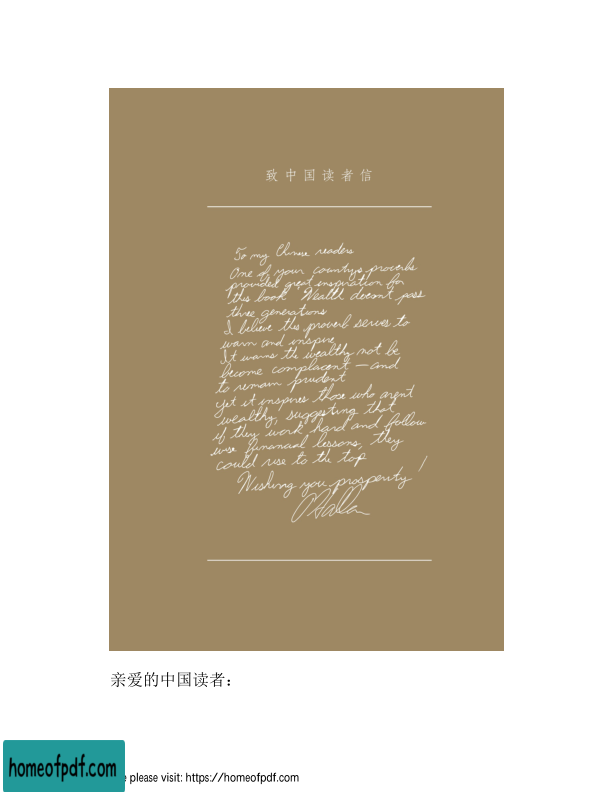 致中国读者信
To my Chinese readers
One of your country's proverbs
provided great inspiration for
this book "Wealth doesn't pass
three generations
I believe this proverb serves to
warn and inspire
It warns the wealthy not be
become complacent — and
to remain prudent
yet it inspires those who aren't
wealthy, suggesting that
if they work hard and follow
wise financial lessons, they
could rise to the top
Wishing you prosperity!
亲爱的中国读者：
homeofpdf.com
please visit: https://homeofpdf.com